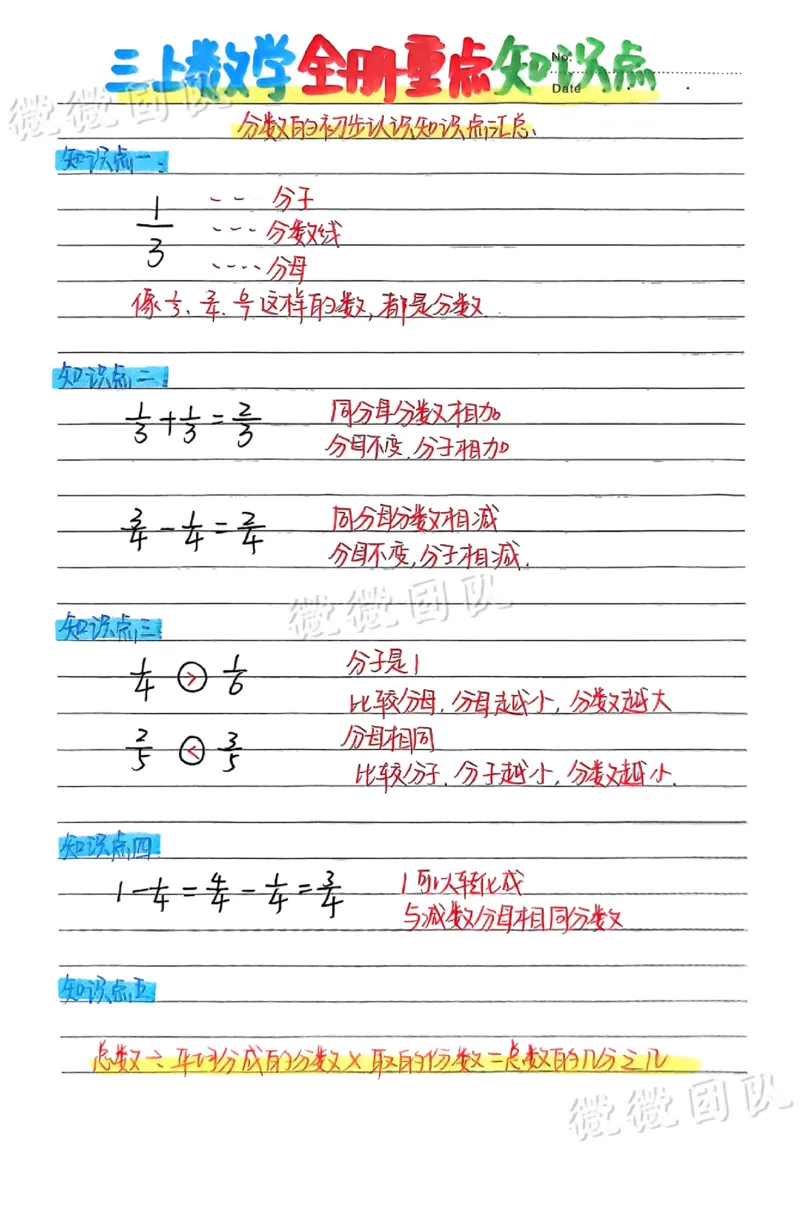 三上数学全册重点知识点
No:
Date
微微团队
分数的初步认识知识点汇总
知识点一:
1/3
-- 分子
--- 分数线
---- 分母
这样的数,都是分数.
知识点二:
1/3+1/3=2/3
同分母分数相加
分母不变.分子相加
3/4-1/4=2/4
同分母分数相减
分母不变,分子相减.
微微团队
知识点三
1/4 > 1/6
分子是1
比较分母.分母越小,分数越大
2/5 < 3/5
分母相同
比较分子.分子越小,分数越小.
知识点四
1-1/4=4/4-1/4=3/4
1可以转化成
与减数分母相同分数
知识点五
总数÷平均分成的分数×取的份数=总数的几分之几
微微团队